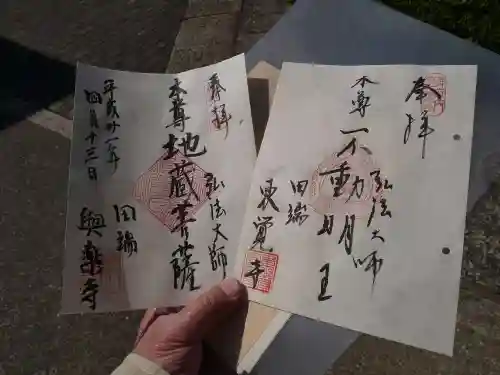 奉拝
弘法大師
本尊 地蔵菩薩
田端
與楽寺
平成廿一年
四月十三日
奉拝
弘法大師
本尊 不動明王
田端
東覚寺